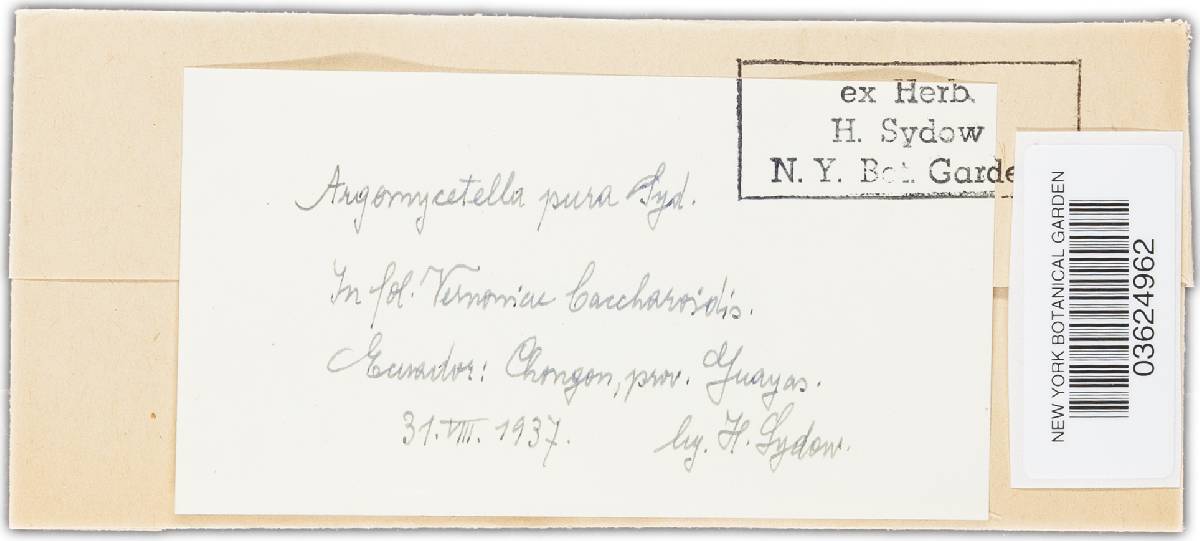 ex Herb.
H. Sydow
N. Y. Bot. Garde
Argomycetella pura Syd.
In fol. Vernoniae baccharoidis.
Ecuador: Chongon, prov. Guayas.
31.VIII.1937. leg. H. Sydow.
NEW YORK BOTANICAL GARDEN
03624962